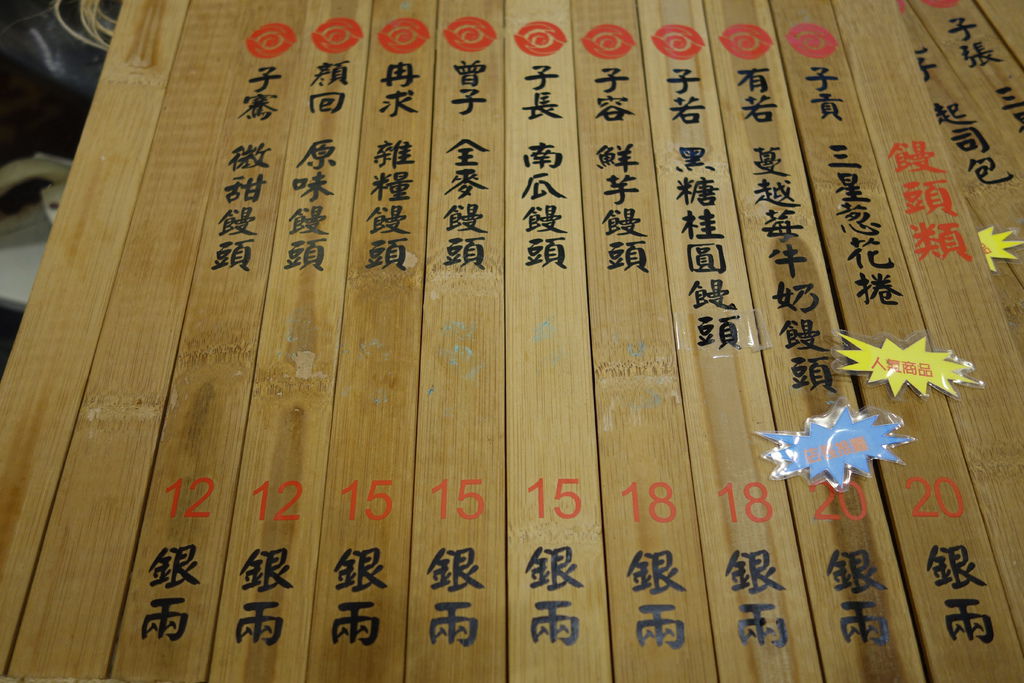 子張
起司包
饅頭類
子貢
三星葱花捲
人氣商品
20
銀兩
有若
蔓越莓牛奶饅頭
20
銀兩
子若
黑糖桂圓饅頭
18
銀兩
子容
鮮芋饅頭
18
銀兩
子長
南瓜饅頭
15
銀兩
曾子
全麥饅頭
15
銀兩
冉求
雜糧饅頭
15
銀兩
顏回
原味饅頭
12
銀兩
子騫
微甜饅頭
12
銀兩